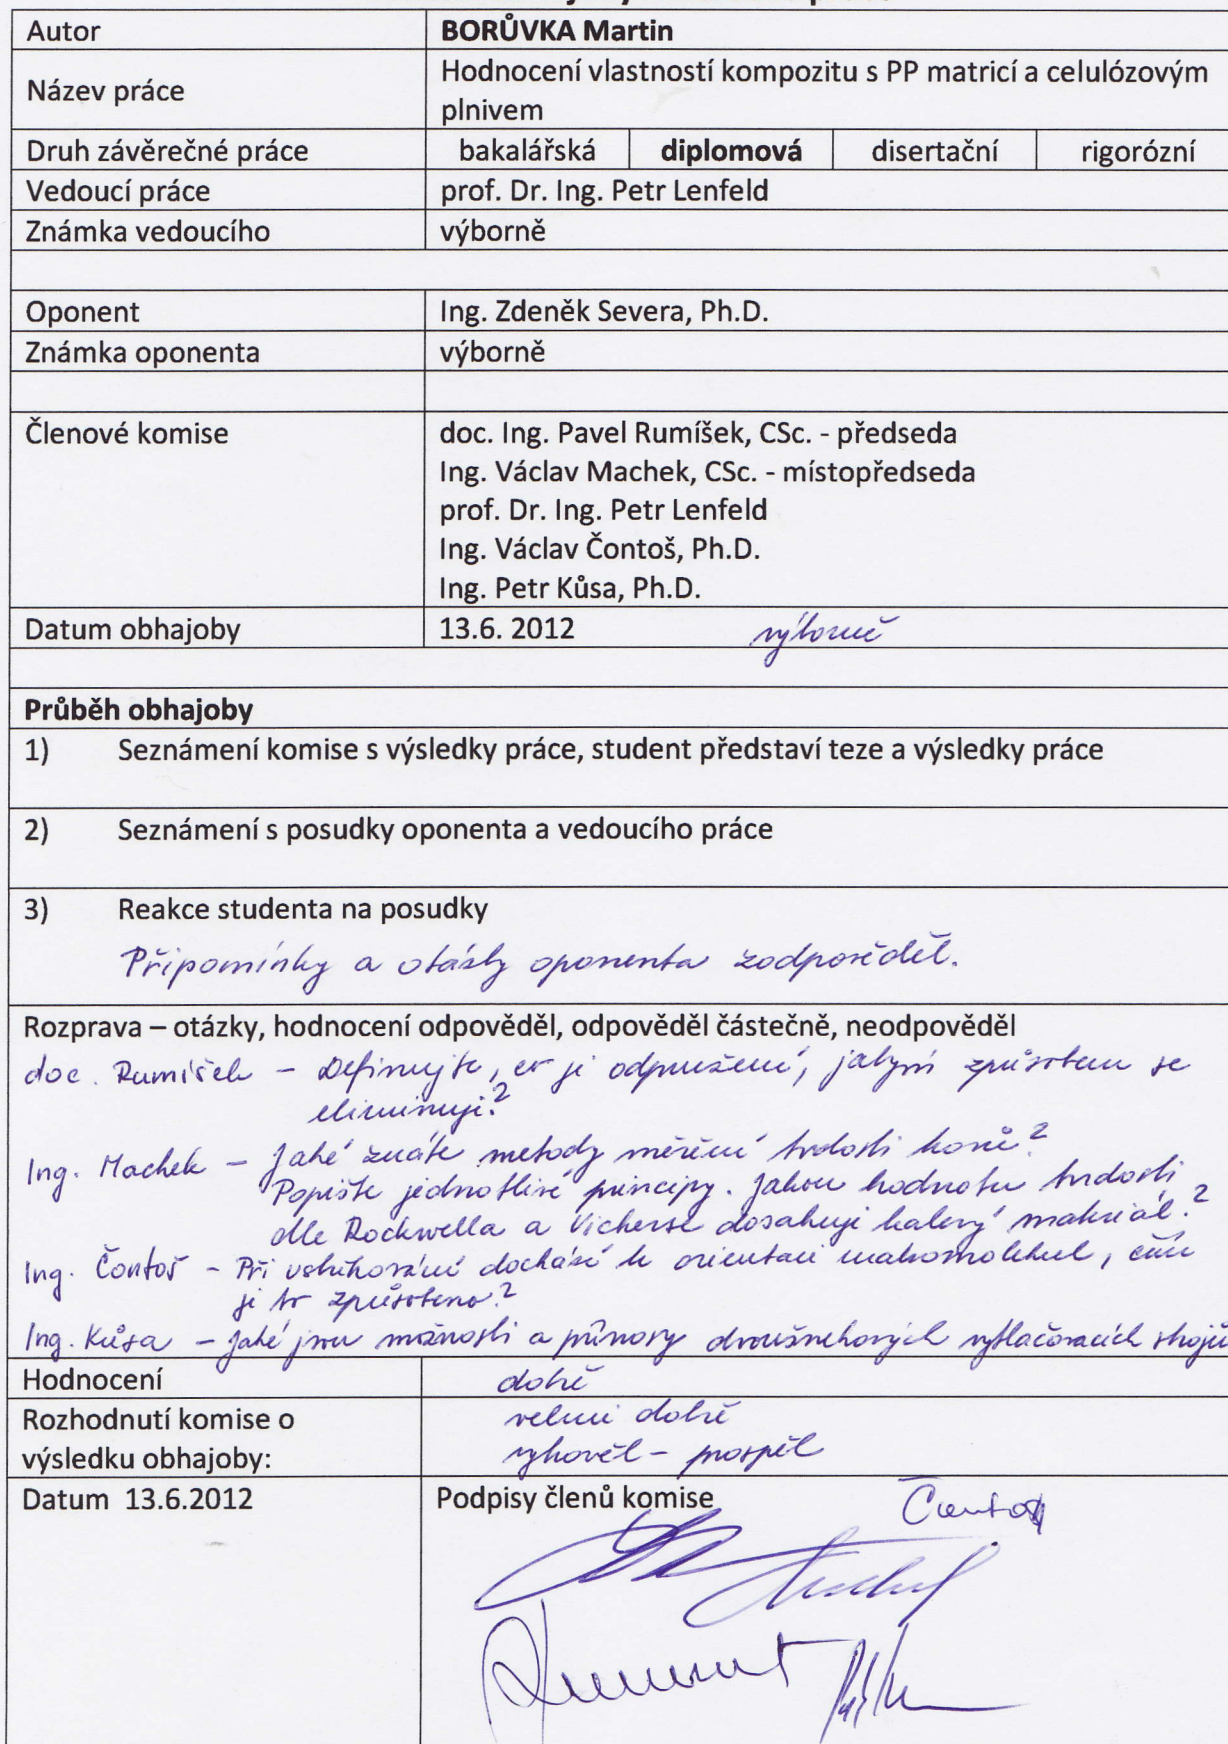 Autor BORŮVKA Martin
Název práce Hodnocení vlastností kompozitu s PP matricí a celulózovým
plnivem
Druh závěrečné práce bakalářská diplomová disertační rigorózní
Vedoucí práce prof. Dr. Ing. Petr Lenfeld
Známka vedoucího výborně
Oponent Ing. Zdeněk Severa, Ph.D.
Známka oponenta výborně
Členové komise doc. Ing. Pavel Rumíšek, CSc. - předseda
Ing. Václav Machek, CSc. - místopředseda
prof. Dr. Ing. Petr Lenfeld
Ing. Václav Čontoš, Ph.D.
Ing. Petr Kůsa, Ph.D.
Datum obhajoby 13.6. 2012 výborně
Průběh obhajoby
1) Seznámení komise s výsledky práce, student představí teze a výsledky práce
2) Seznámení s posudky oponenta a vedoucího práce
3) Reakce studenta na posudky
Připomínky a otázky oponenta zodpověděl.
Rozprava – otázky, hodnocení odpověděl, odpověděl částečně, neodpověděl
doc. Rumíšek – Definujte, co je odpružení, jakým způsobem se
eliminuje?
Ing. Machek – Jaké znáte metody měření tvrdosti kovů?
Popište jednotlivé principy. Jakou hodnotu tvrdosti
dle Rockwella a Vickerse dosahuje kalený materiál?
Ing. Čontoš – Při vstřikování dochází k orientaci makromolekul, čím
je to způsobeno?
Ing. Kůsa – Jaké jsou možnosti a přínosy dvoušnekových vytlačovacích strojů
Hodnocení dobře
Rozhodnutí komise o velmi dobře
výsledku obhajoby: vyhověl – prospěl
Datum 13.6.2012 Podpisy členů komise Čontoš